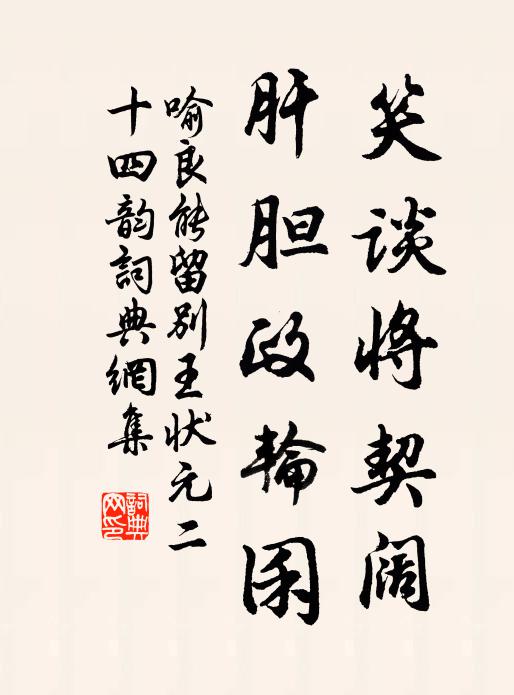 笑谈将契阔
肝胆政轮囷
喻良能留别王状元二
十四韵词典网集
詞典
网印